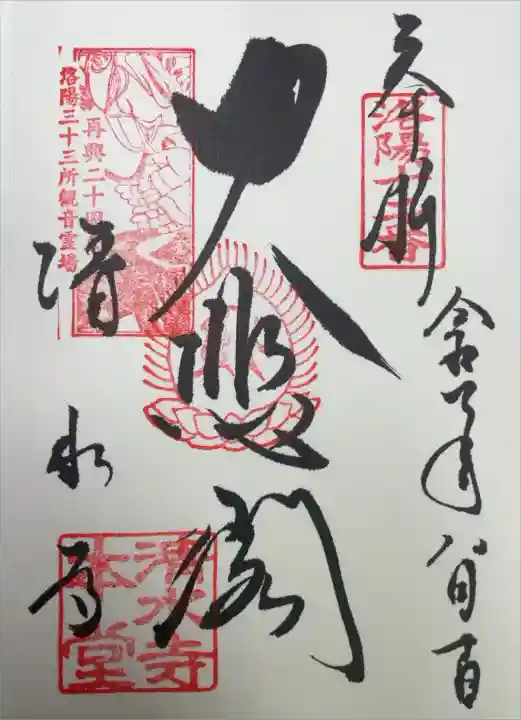 奉拝
洛陽十二番
令和七年八月
大悲閣
再興二十周
洛陽三十三所観音霊場
清水寺
清水寺
本堂